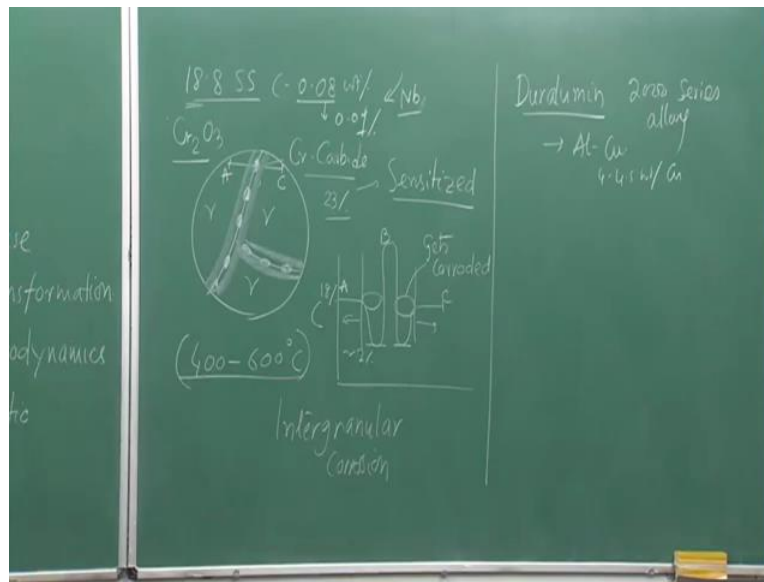 se
nsformation
odynamics
tic
18-8 SS C-0.08 wt% Nb
0.01%
Cr2O3
Cr-Carbide
23% Sensitized
A C
γ γ
γ
B
gets
Corroded
18% A
C
C
~2%
(400-600°C)
Intergranular
Corrosion
Duralumin 2000 Series
alloy
→ Al-Cu
4-4.5 wt% Cu